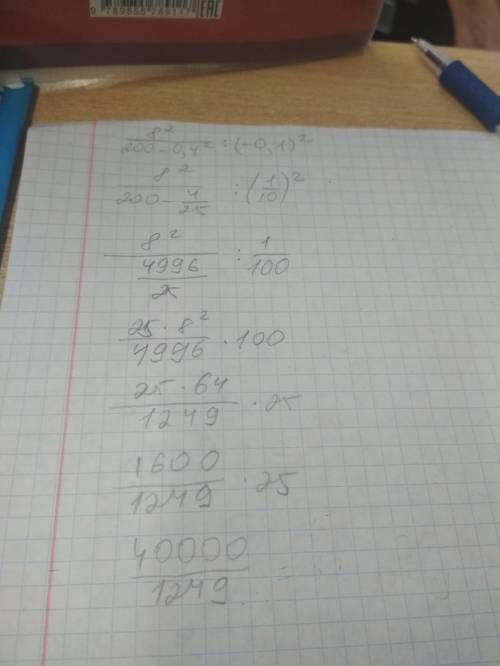 EAC
8² / 200 - 0,4² : (-0,1)²
8² / 200 - 4/25 : (1/10)²
8² / 4996/25 : 1/100
25 · 8² / 4996 · 100
25 · 64 / 1249 · 25
1600 / 1249 · 25
40000 / 1249 = ...